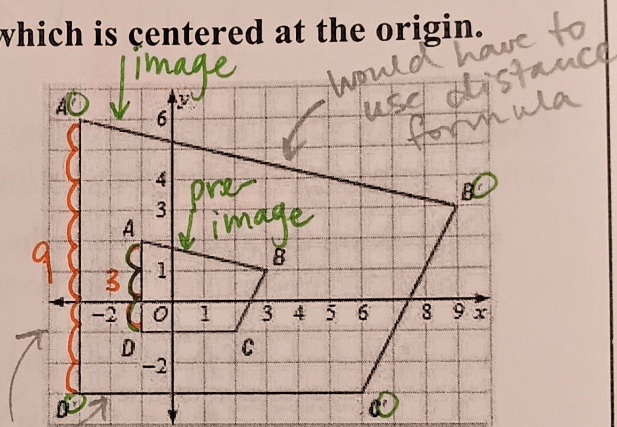 which is centered at the origin.
image
would have to
use distance
formula
A'
y
6
4
pre
image
3
B'
A
B
9
3
1
-2
O
1
3
4
5
6
8
9
x
D
C
-2
D'
C'